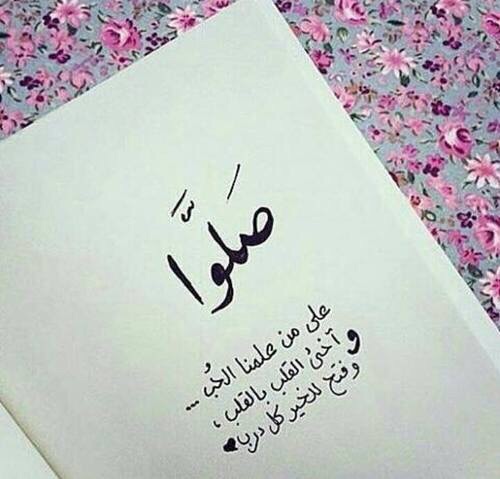 صَلوَّا
على من علمنا الحُب ...
و آخىٰ القلب بالقلب ،
وفتح للخير كل درب